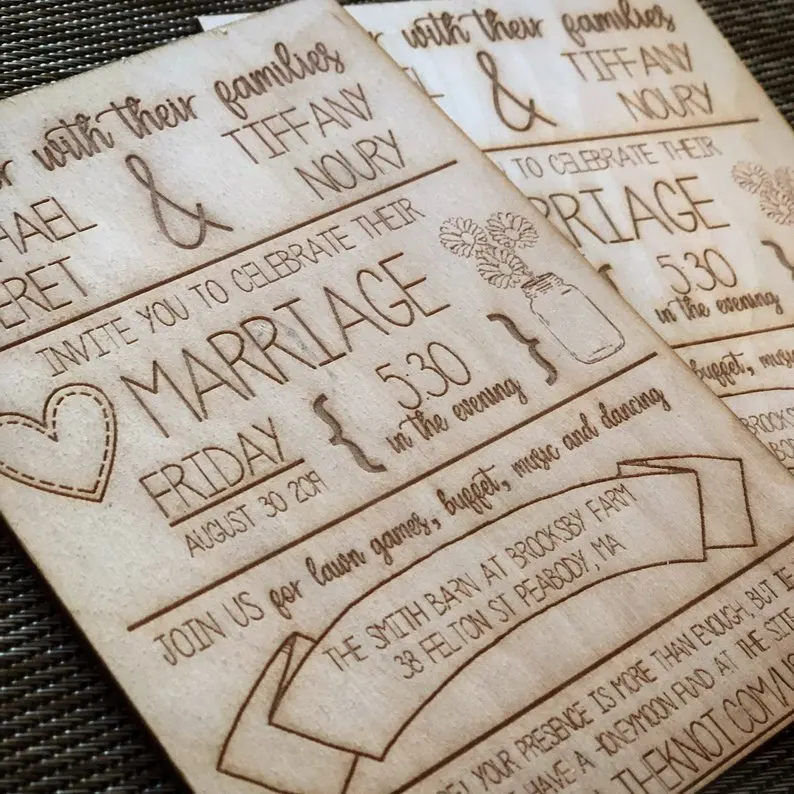 with their families
& TIFFANY
NOURY
INVITE YOU TO CELEBRATE THEIR
MARRIAGE
FRIDAY
AUGUST 30 2019
{ 5:30 }
in the evening
JOIN US for lawn games, buffet, music and dancing
THE SMITH BARN AT BROOKSBY FARM
38 FELTON ST PEABODY, MA
YOUR PRESENCE IS MORE THAN ENOUGH, BUT
HAVE A HONEYMOON FUND AT THE SITE
THEKNOT.COM/US
with their families
& TIFFANY
NOURY
TO CELEBRATE THEIR
5:30 }
in the evening
buffet, music
BROOKSBY